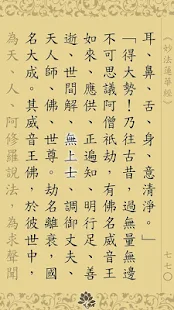 《妙法蓮華經》
七七〇
耳、鼻、舌、身、意清淨。」
「得大勢!乃往古昔,過無量無邊
不可思議阿僧祇劫,有佛名威音王
如來、應供、正遍知、明行足、善
逝、世間解、無上士、調御丈夫、
天人師、佛、世尊。劫名離衰,國
名大成。其威音王佛,於彼世中,
為天、人、阿修羅說法,為求聲聞